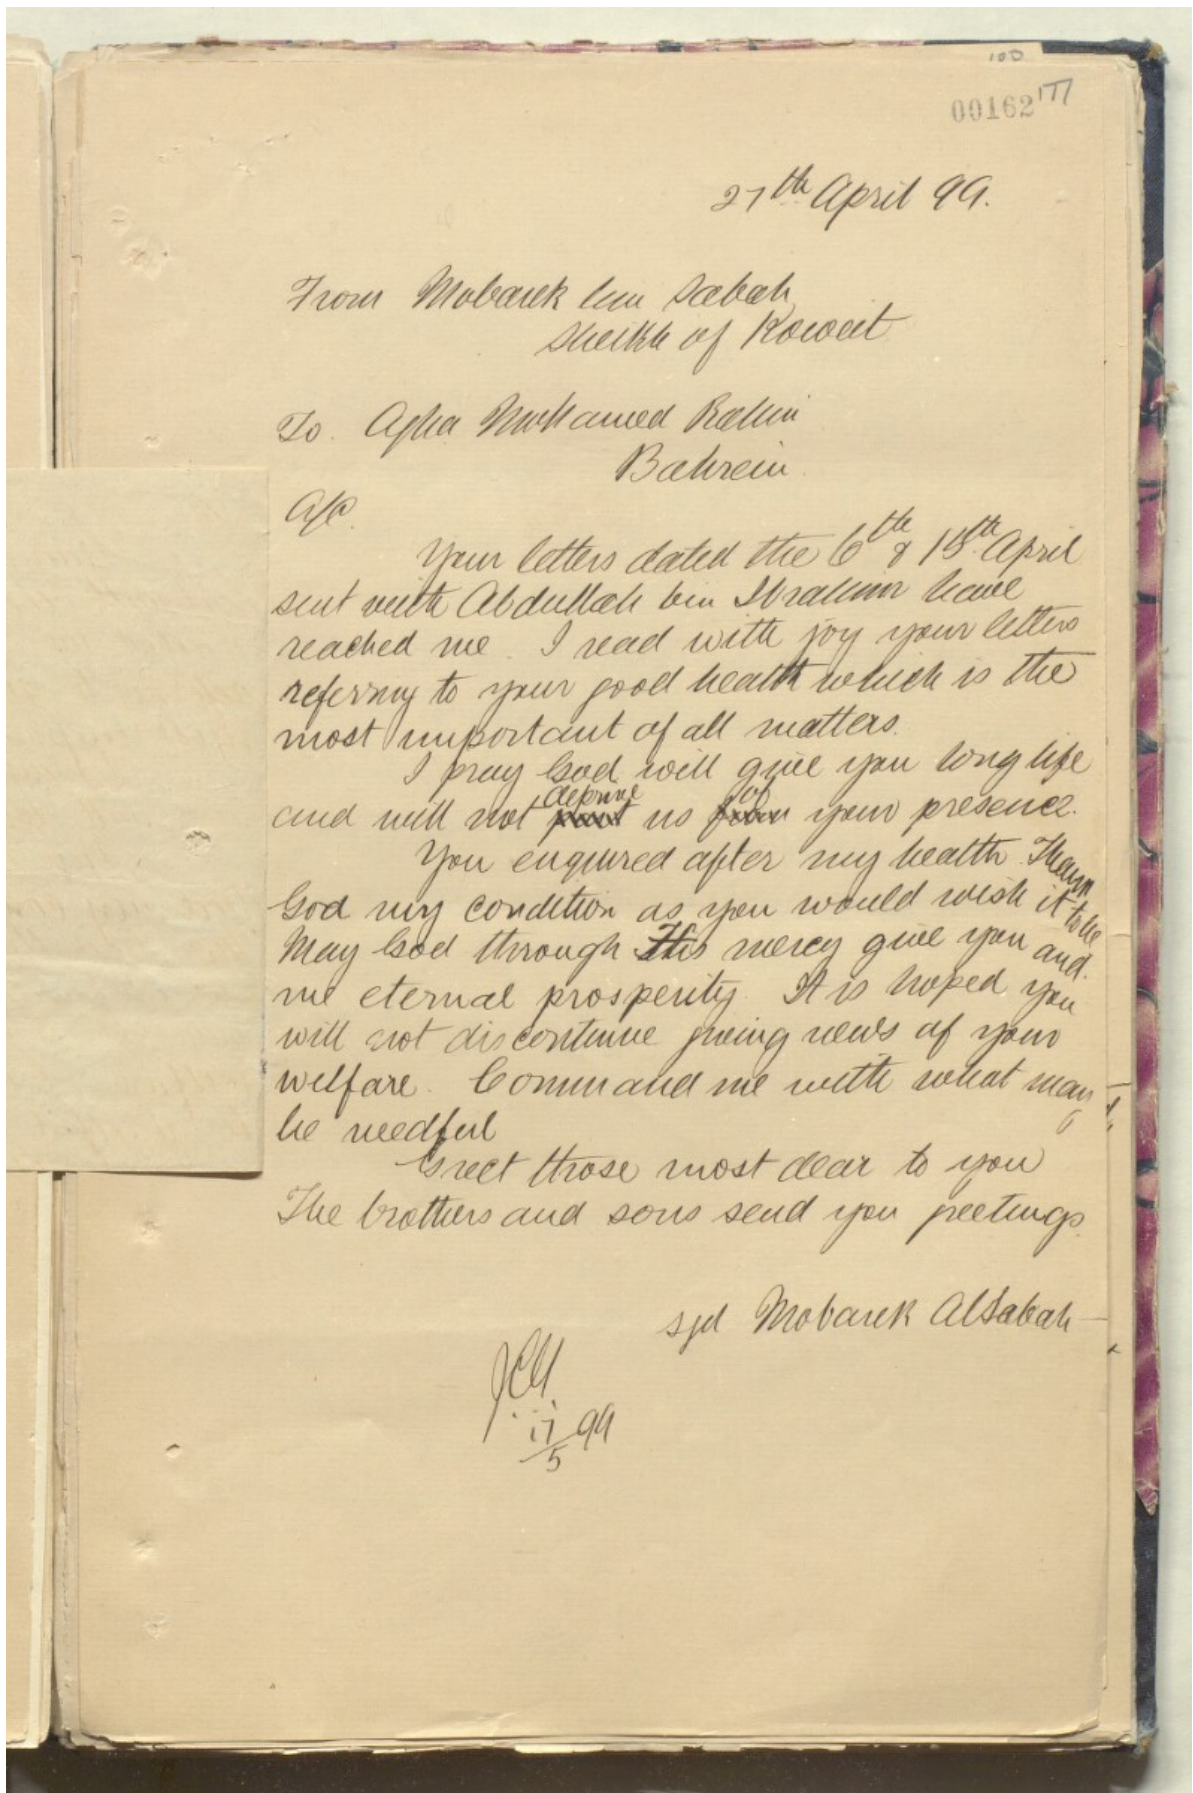 100
00162 177
27th April 99.
From Mobarek bin Sabah
Sheikh of Koweit
To Agha Mohamed Rahim
Bahrein
A/C.
Your letters dated the 6th & 15th April
sent with Abdullah bin Ibrahim have
reached me. I read with joy your letters
referring to your good health which is the
most important of all matters.
I pray God will give you long life
deprive of
and will not us your presence.
You enquired after my health. Thank
God my condition as you would wish it to be
May God through His mercy give you and
me eternal prosperity. It is hoped you
will not discontinue giving news of your
welfare. Command me with what may
be needful
Greet those most dear to you
The brothers and sons send you greetings.
sgd Mobarek AlSabah
17/5 99